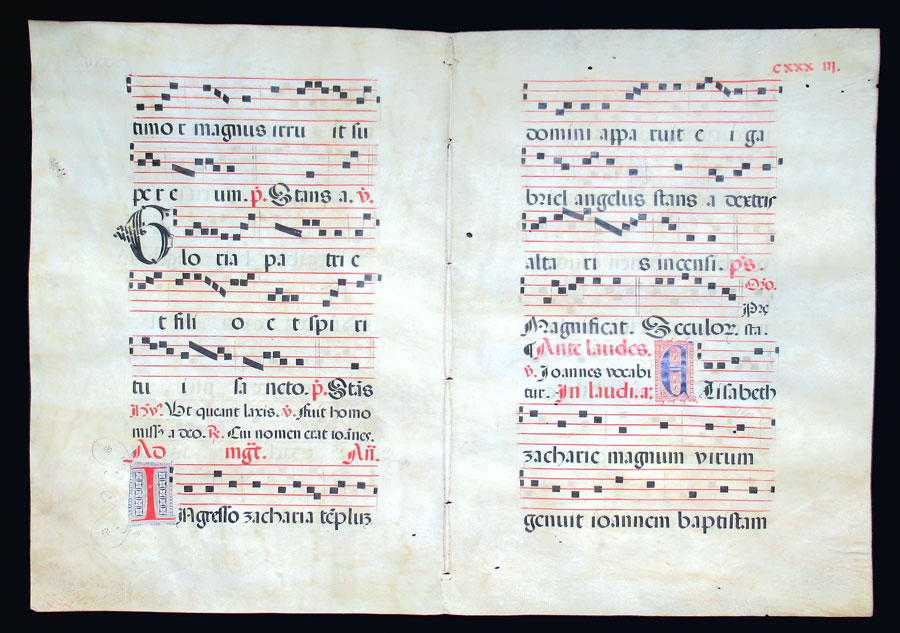 timo r magnus irru it su
per e um. p̄. Stans a. v̄.
Glo ria pa tri e
t fili o e t spi ri
tu i sa ncto. p̄. Stās
Hȳ. Ut queant laxis. v̄. Fuit homo
missꝰ a deo. R̄. Cui nomen erat ioānes.
Ad mgt̄. Añ.
INgresso zacharia tēpluz
cxxx iij.
domini appa ruit e i ga
briel angelus stans a dextris
alta ri s incensi. p̄s.
Oro.
Pre
Magnificat. Seculor. sta.
¶ Ante laudes.
v̄. Joannes vocabi
tur. In laudi. a:
ELisabeth
zacharie magnum virum
genuit ioannem baptistam